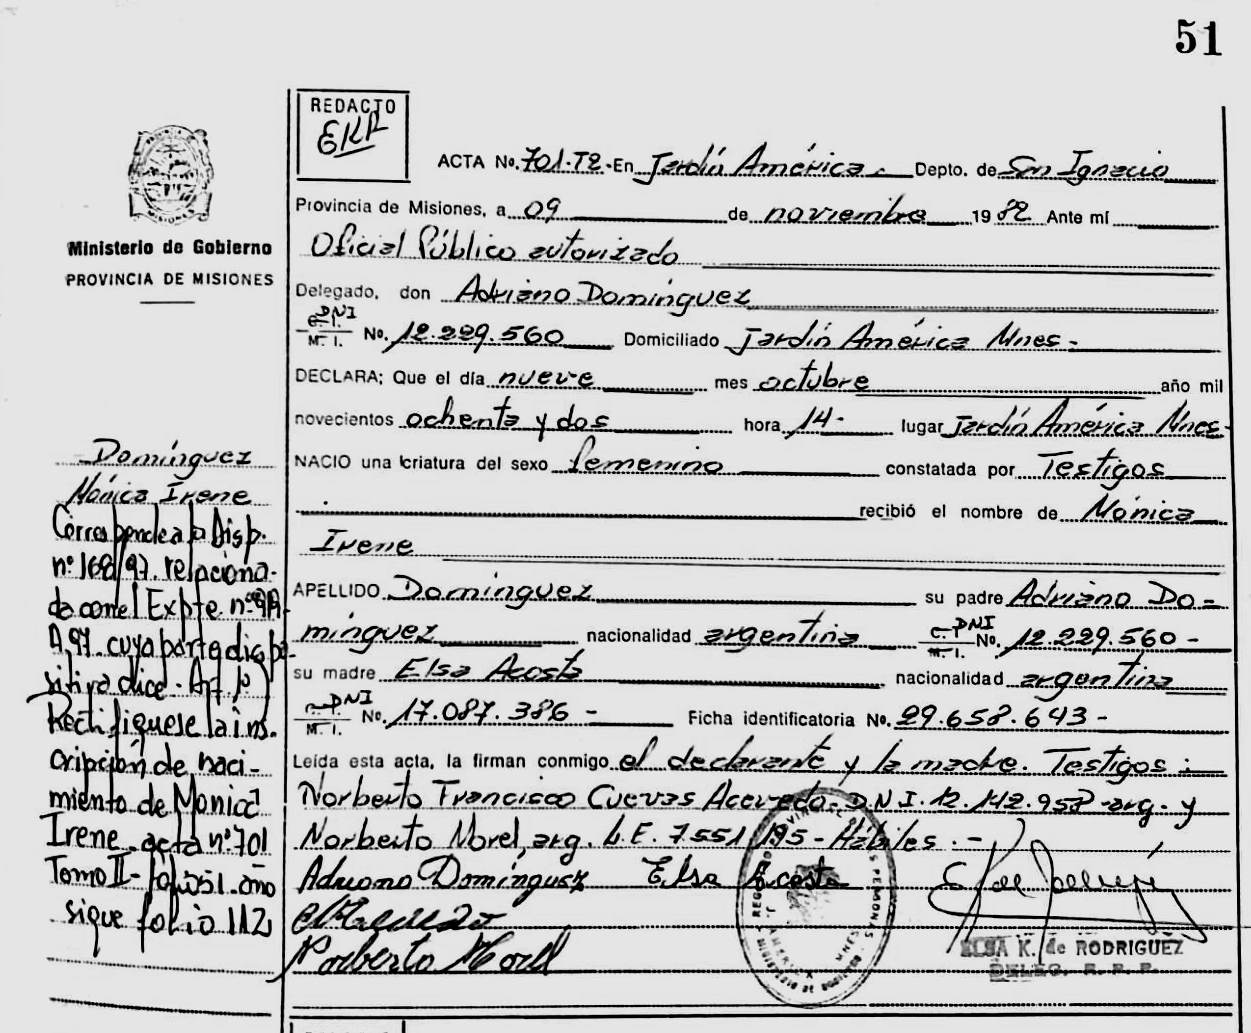 51
REDACTO
EKR
MISIONES
Ministerio de Gobierno
PROVINCIA DE MISIONES
ACTA No. 701-T2-En Jardín América Depto. de San Ignacio
Provincia de Misiones, a 09 de noviembre 1982 Ante mí
Oficial Público autorizado
Delegado, don Adriano Domínguez
DNI
C. I.
M. I. No. 12.229.560 Domiciliado Jardín América Mnes-
DECLARA; Que el día nueve mes octubre año mil
novecientos ochenta y dos hora 14- lugar Jardín América Mnes-
NACIO una criatura del sexo femenino constatada por Testigos
recibió el nombre de Mónica
Irene
APELLIDO Domínguez su padre Adriano Do-
mínguez nacionalidad argentina C. DNI M. I. No. 12.229.560-
su madre Elsa Acosta nacionalidad argentina
DNI
M. I. No. 17.087.386- Ficha identificatoria No. 29.658.643-
Leída esta acta, la firman conmigo el declarante y la madre. Testigos:
Norberto Francisco Cuevas Acevedo- D.N.I. 12.142.958-arg. y
Norberto Morel, arg. L.E. 7551195- Hábiles.-
Adriano Domínguez Elsa Acosta
Norberto Morel
ELSA K. de RODRIGUEZ
DELEG. R. P. P.
Domínguez
Mónica Irene
Corresponde a la Disp.
nº 168/97. relaciona-
da con el Expte. nº
A 97. cuya parte dispo-
sitiva dice. Art 1º)
Rectifíquese la ins.
cripción de naci-
miento de Monica
Irene. acta nº 701
Tomo II- folio 51. año
sique folio 112